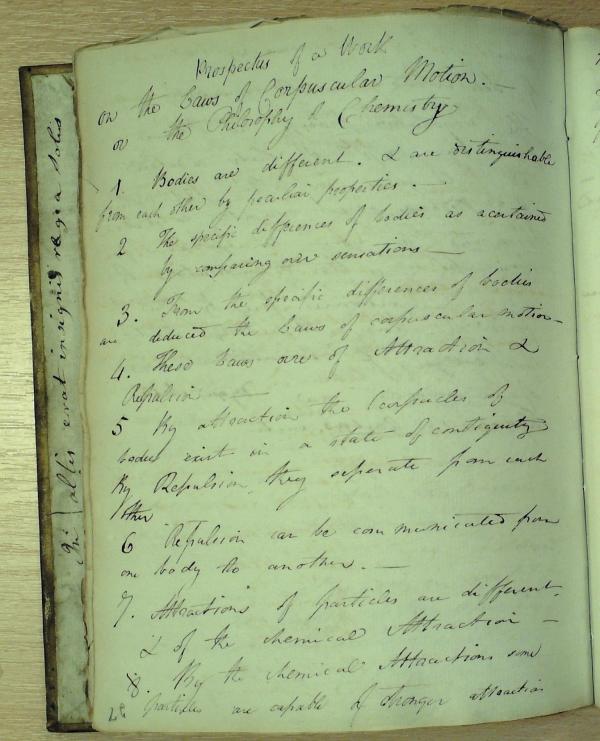 Prospectus of a Work
on the Laws of Corpuscular Motion. —
or the Philosophy of Chemistry
1. Bodies are different. & are distinguishable
from each other by peculiar properties. —
2 The specific differences of bodies as ascertained
by comparing over sensations —
3. From the specific differences of bodies
are deduced the Laws of corpuscular motion —
4. These Laws are of Attraction &
Repulsion —
5 By attraction the Corpuscles of
bodies exist in a state of contiguity
By Repulsion they seperate from each
other
6 Repulsion can be communicated from
one body to another. —
7. Attractions of particles are different.
& of the chemical Attraction —
8. By the chemical Attractions some
particles are capable of stronger attraction
altis erat insignis regia solis